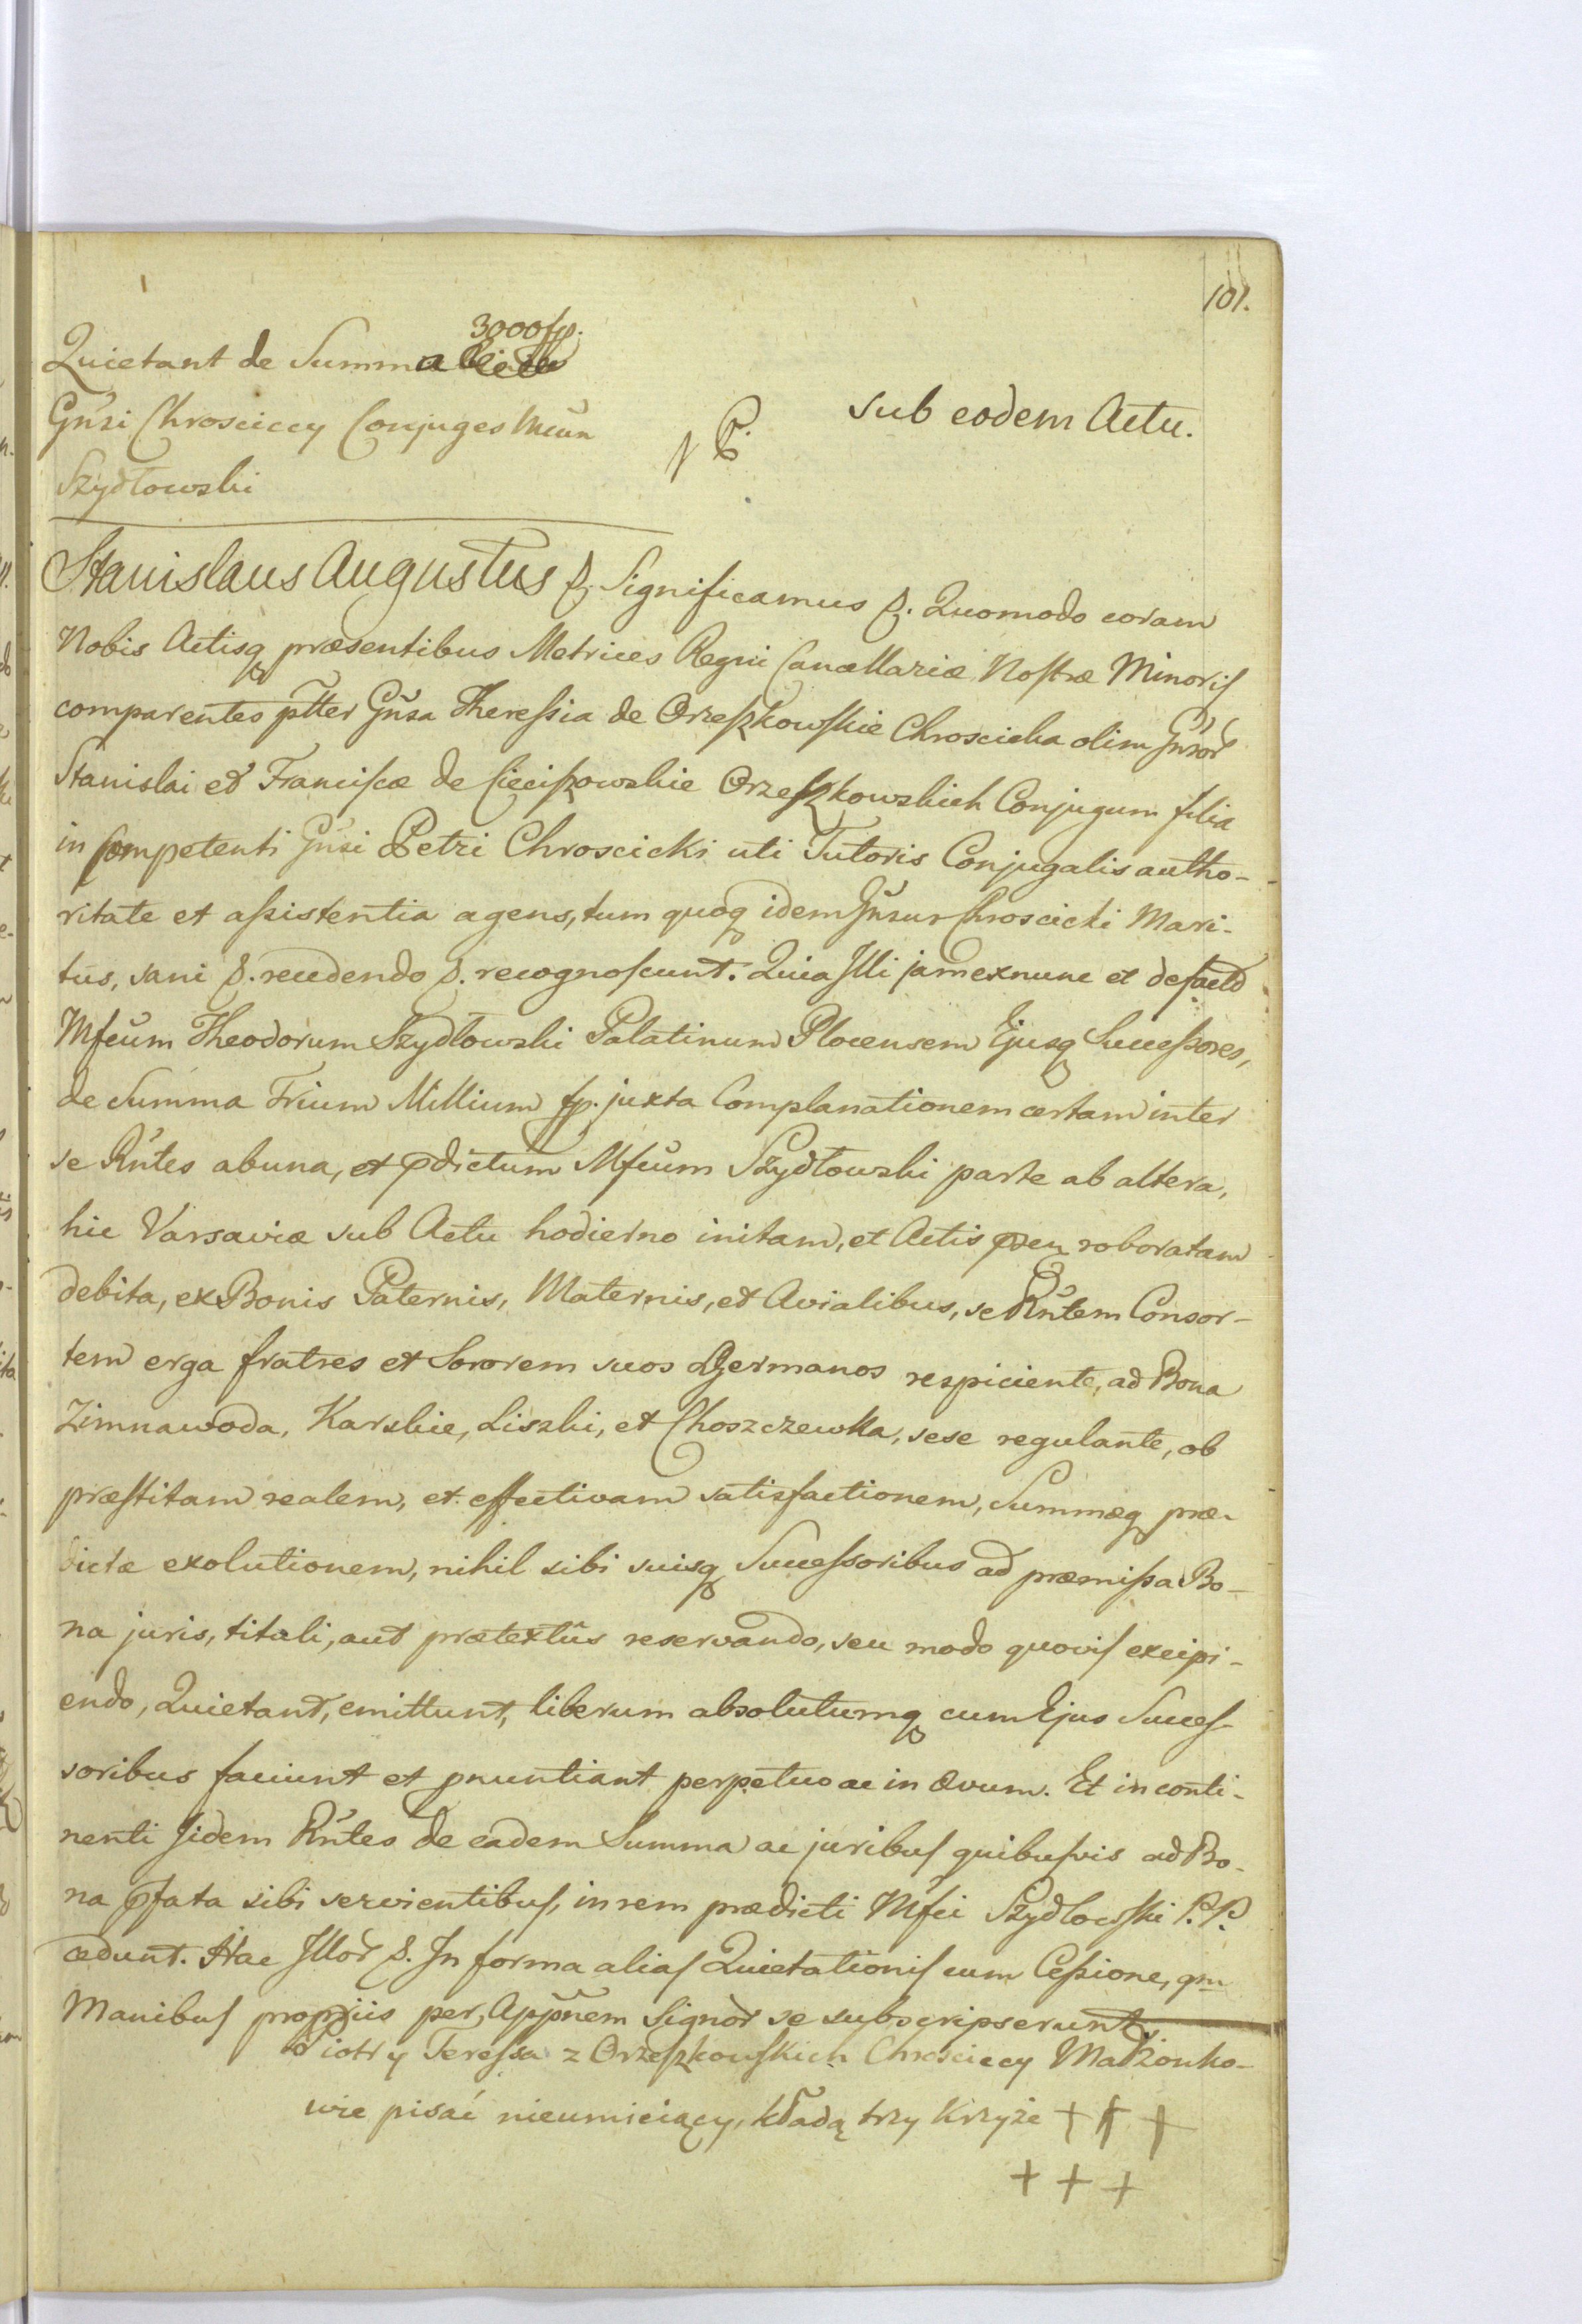 101.
3000 fp.
Quietant de Summa
Gnãi Chrosciccy Conjuges Mcum
Szydłowski
sub eodem Actu.
Stanislaus Augustus &. Significamus &. Quomodo coram
Nobis Actisq præsentibus Metrices Regni Cancellariæ Nostræ Minoris
comparentes psltter Gnsa Theressia de Orzeszkowskie Chroscicka olim Gnror
Stanislai et Franciscæ de Cieciszowskie Orzeszkowskich Conjugum filia
in competenti Gnsi Petri Chroscicki uti Tutoris Conjugalis autho-
ritate et assistentia agens, tum quoq idem Gnsus Chroscicki Mari-
tus, sani &. recedendo &. recognoscunt. Quia Illi jam exnunc et defacto
Mfcum Theodorum Szydłowski Palatinum Plocensem Ejusq Successores,
de Summa Trium Millium fp. juxta Complanationem certam inter
se Rntes ab una, et pdictum Mfcum Szydłowski parte ab altera,
hic Varsaviæ sub Actu hodierno initam, et Actis pren roboratam
debita, ex Bonis Paternis, Maternis, et Avialibus, se Rntem Consor-
tem erga fratres et Sororem suos Germanos respiciente, ad Bona
Zimnawoda, Karskie, Liszki, et Choszczewka, sese regulante, ob
præstitam realem, et effectivam satisfactionem, Summæq præ-
dictæ exolutionem, nihil sibi suisq Successoribus ad præmissa Bo-
na juris, tituli, aut prætextûs reservando, seu modo quovis excipi-
endo, Quietant, emittunt, liberum absolutumq cum Ejus Succes-
soribus faciunt et pnuntiant perpetuo ac in Ævum. Et in conti-
nenti Iidem Rntes de eadem Summa ac juribus quibusvis ad Bo-
na pfata sibi servientibus, in rem prædicti Mfci Szydłowski P. P.
cedunt. Hac Illor &. In forma alias Quietationis cum Cessione, qm
Manibus propriis per Appnem Signor se subscripserunt.
Piotr y Teressa z Orzeszkowskich Chrosciccy Małżonko-
wie pisać nieumieiący, kładą trzy Krzyże + + +
+ + +